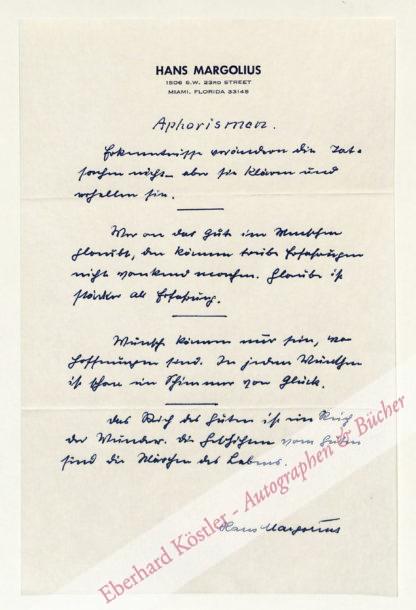 HANS MARGOLIUS
1506 S.W. 23RD STREET
MIAMI, FLORIDA 33145
Aphorismen.
Erkenntnisse verändern die Tat-
sachen nicht – aber sie klären und
erhellen sie.
Wer an das Gute im Menschen
glaubt, den können trübe Erfahrungen
nicht wankend machen. Glaube ist
stärker als Erfahrung.
Wünsche können nur sein, wo
Hoffnungen sind. In jedem Wünschen
ist schon ein Schimmer von Glück.
Das Reich des Guten ist ein Reich
der Wunder. Die Geschichten vom Guten
sind die Märchen des Lebens.
Hans Margolius
Eberhard Köstler - Autographen & Bücher